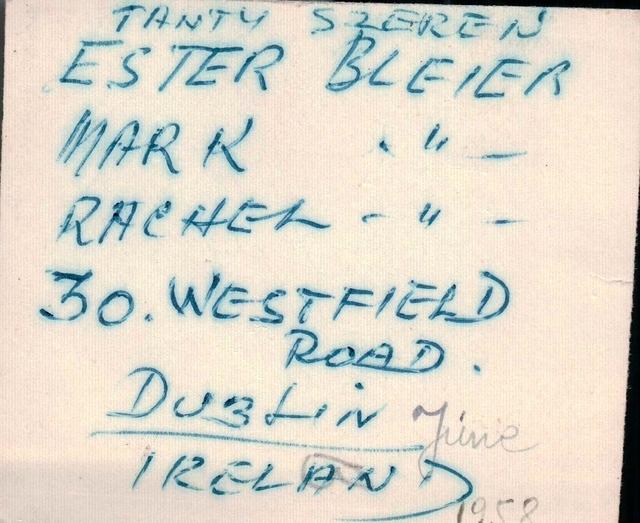 TANTY SZEREN
ESTER BLEIER
MARK - " -
RACHEL - " -
30. WESTFIELD
ROAD.
DUBLIN
June
IRELAND
1958